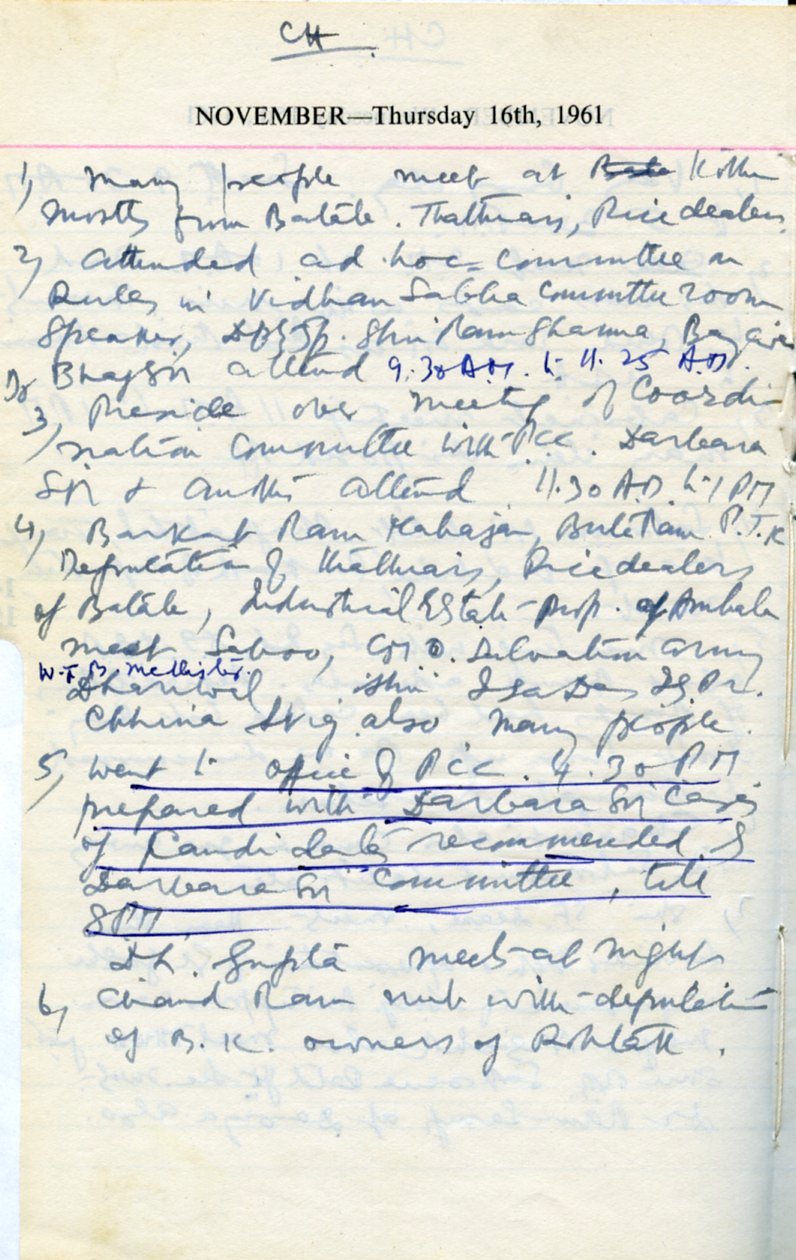 CH.
NOVEMBER—Thursday 16th, 1961
1, Many people meet at Kothi
Mostly from Batala. Thathiars, Rice dealers
2, attended ad hoc committee on
Rules in Vidhan Sabha Committee room
Speaker, Shri Ram Sharma,
Bhag Sin attend 9.30 A.M. to 11.25 A.M.
3, Preside over meeting of Coordi
nation Committee with PCC. Darbara
Sin & others attend 11.30 A.M. to 1 PM
4, Barkat Ram Mahajan, P.T.K
Deputation of Thathiars, Rice dealers
of Batala, Industrial Estate Prop. of Ambala
meet Salvation army
W.F.B. McAllister.
Dhariwal, Shri
Chhina also many people.
5, Went to office of PCC. 4.30 PM
prepared with Darbara Sin Cases
of Candidates recommended by
Darbara Sin Committee, till
8 PM
D.L. Gupta meet at night
6, Chand Ram met with deputation
of B.K. owners of Rohtak.